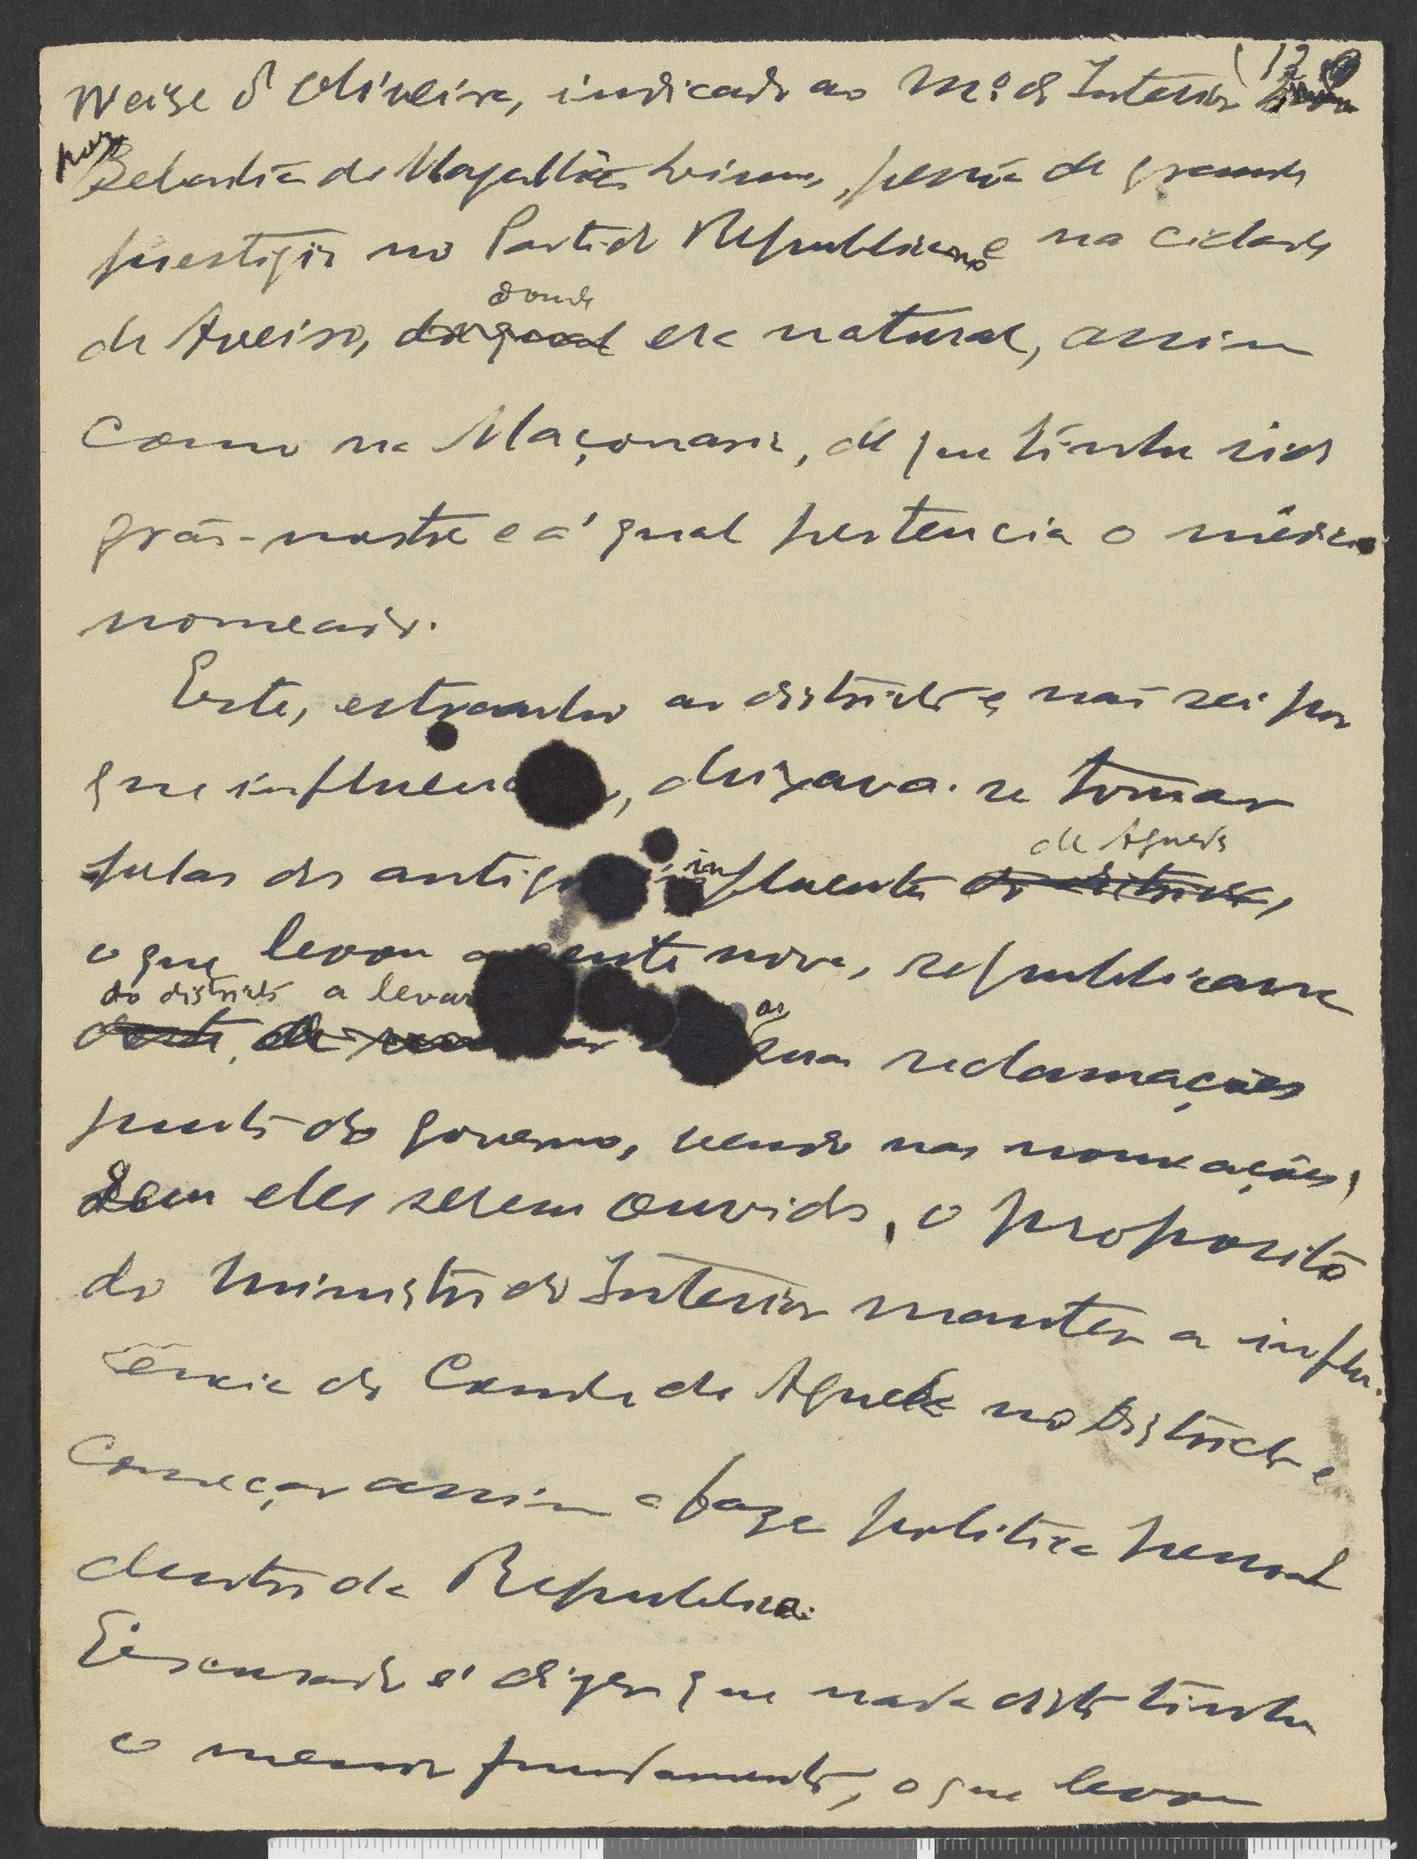 (12
Weise d'Oliveira, indicado ao M.º do Interior
por
Sebastião de Magalhães Lima, pessoa de grande
prestigio no Partido Republicano e na cidade
donde
de Aveiro, da qual era natural, assim
como na Maçonaria, de que tinha sido
grão-mestre e á qual pertencia o médico
nomeado.
Este, estranho ao districto e não sei por
que influencia, deixava-se tomar
de Agueda
pelas do antigo influente do districto,
o que levou a gente nova, republicana
do districto a levar
deste, as suas reclamações
junto do governo, vendo nas nomeações,
sem eles serem ouvidos, o proposito
do Ministro do Interior manter a influ-
encia do Conde de Agueda no Districto e
começar assim a fazer politica pessoal
dentro da Republica.
Escusado é dizer que nada disto tinha
o menor fundamento, o que levou